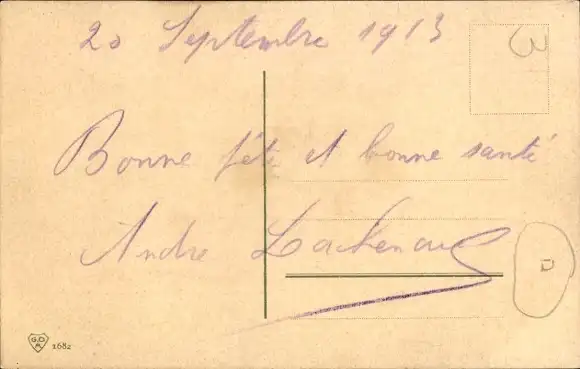 20 Septembre 1913
3
Bonne fête et bonne santé
André
D
G.D.
1682